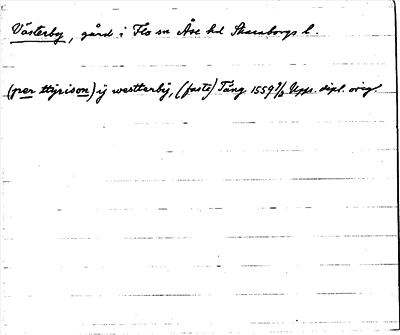 Västerby, gård i Flo sn Åse hd Skaraborgs l.
(per ttyrison) ij westterbÿ, (faste) Tång 1559 7/2 Upps. dipl. orig.